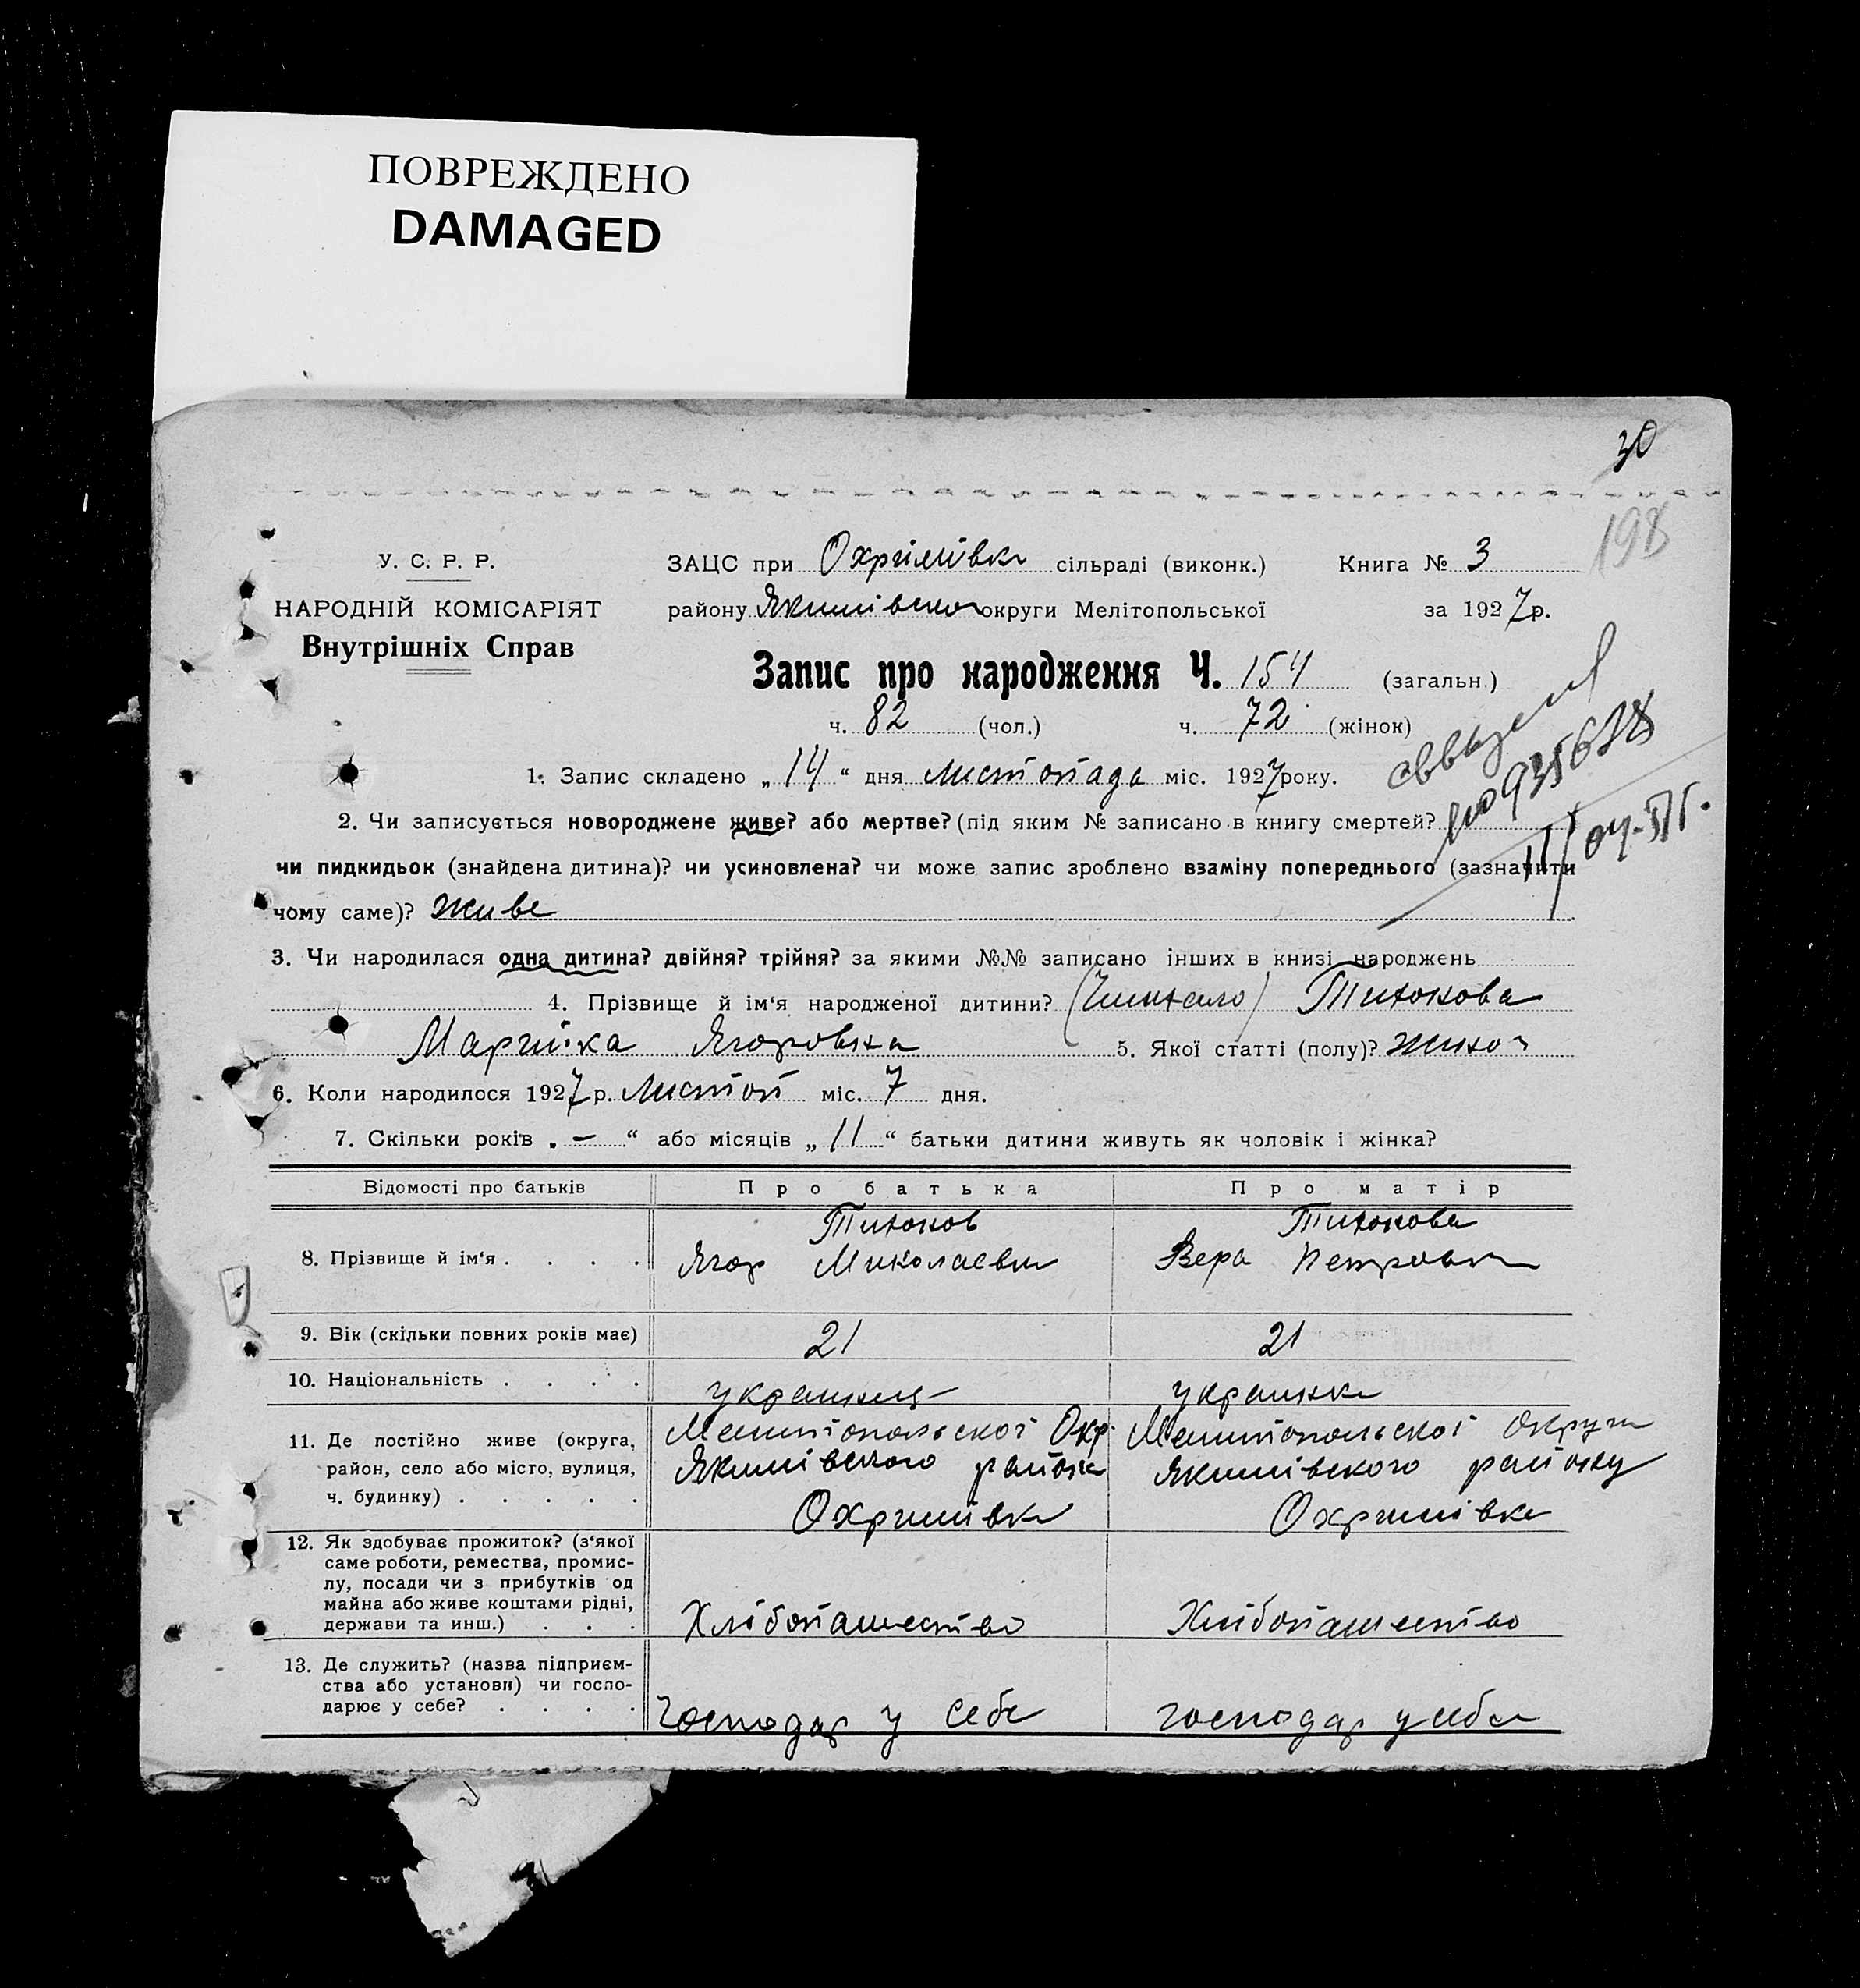 ПОВРЕЖДЕНО
DAMAGED
30
198
У. С. Р. Р.
НАРОДНІЙ КОМІСАРІЯТ
Внутрішніх Справ
ЗАЦС при Охрімівка сільраді (виконк.) Книга № 3
району Якимівсько округи Мелітопольської за 1927 р.
Запис про народження Ч. 154 (загальн.)
ч. 82 (чол.) ч. 72 (жінок)
1. Запис складено „14“ дня листопада міс. 1927 року.
2. Чи записується новороджене живе? або мертве? (під яким № записано в книгу смертей?
чи пидкидьок (знайдена дитина)? чи усиновлена? чи може запис зроблено взаміну попереднього (зазначити
чому саме)? живе
3. Чи народилася одна дитина? двійня? трійня? за якими №№ записано інших в книзі народжень
4. Прізвище й ім‘я народженої дитини? Тихонова
Марийка Ягоровна 5. Якої статті (полу)?
6. Коли народилося 1927 р. Листоп міс. 7 дня.
7. Скільки років „ — “ або місяців „11“ батьки дитини живуть як чоловік і жінка?
Відомості про батьків Про батька Про матір
8. Прізвище й ім‘я . . . .
Тихонов
Ягор Миколаевич
Тихонова
Вера Петровна
9. Вік (скільки повних років має) 21 21
10. Національність . . . . українець українка
11. Де постійно живе (округа,
район, село або місто, вулиця,
ч. будинку) . . . . .
Мелитопольскоі Окр.
Якимівського району
Охримівка
Мелитопольскоі Округи
Якимівского району
Охримівка
12. Як здобуває прожиток? (з‘якої
саме роботи, ремества, промис-
лу, посади чи з прибутків од
майна або живе коштами рідні,
держави та инш.) . . .
Хлібопашество
Хлібопашество
13. Де служить? (назва підприєм-
ства або установи) чи госпо-
дарює у себе? . . . .
Господар у себе
господар у себе